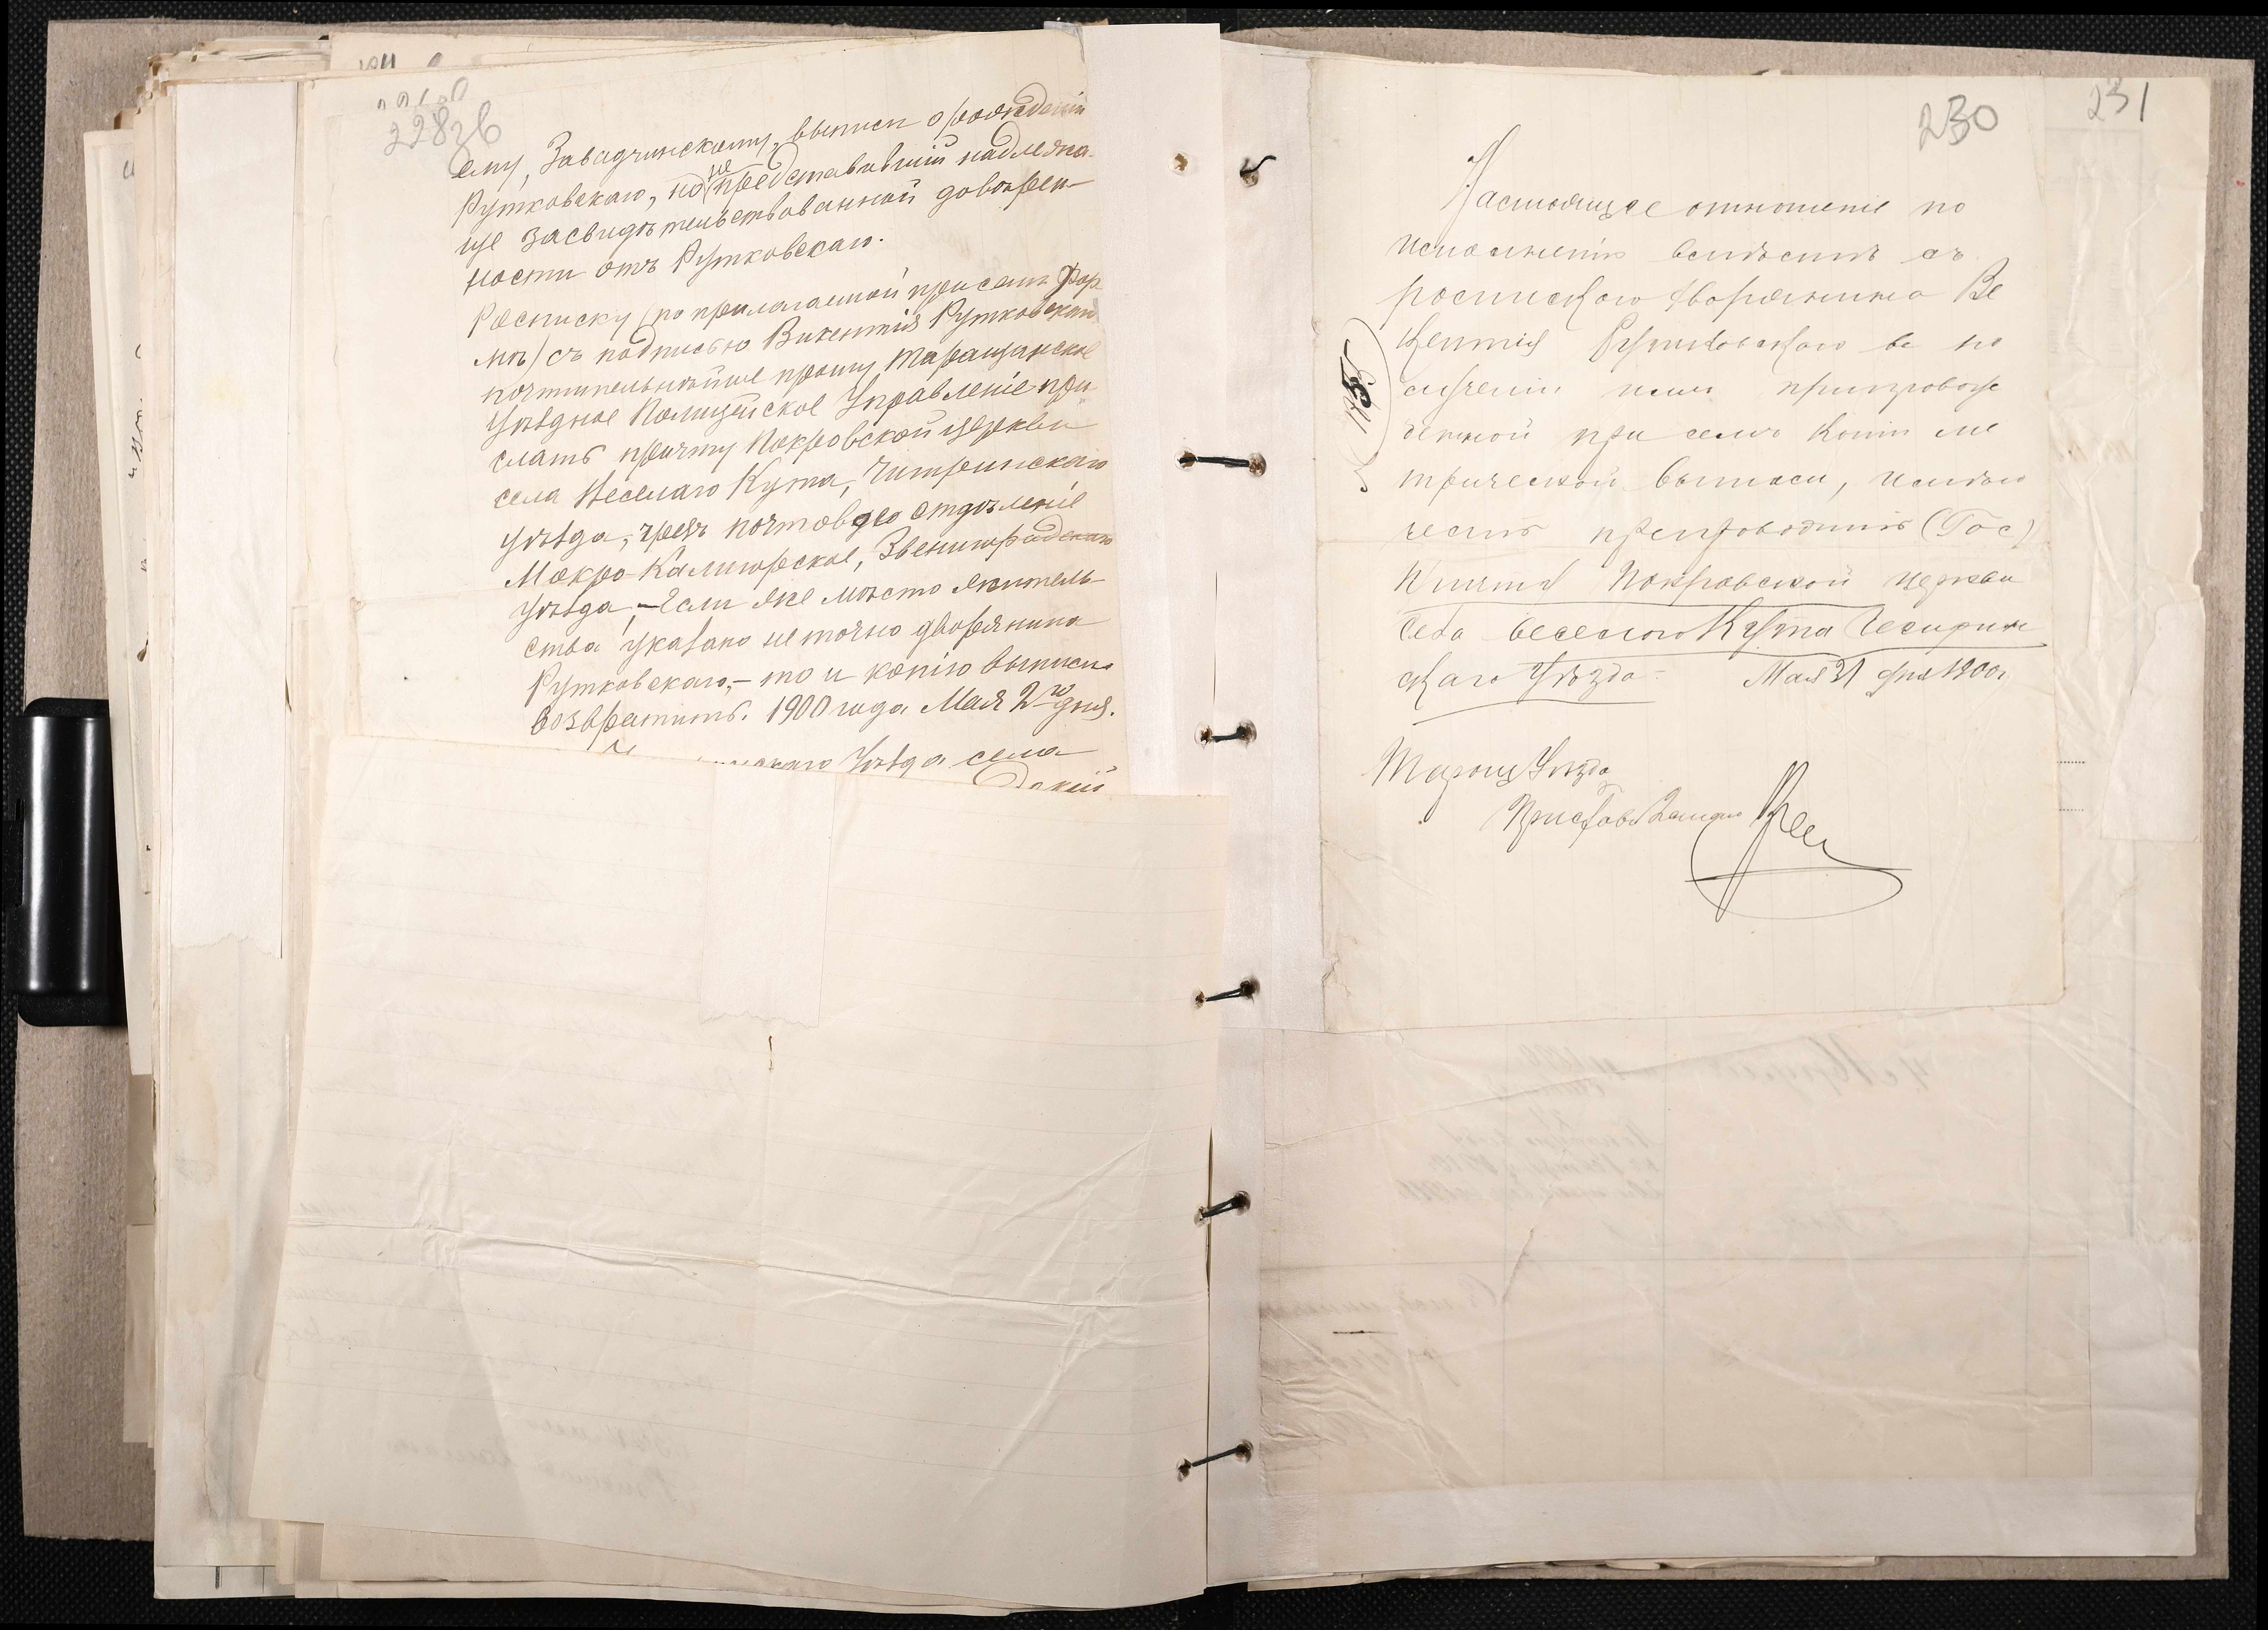 228зв
ему, Завадчинскому, выписи о рождении
Рутковскаго, но не представившій надлежа-
ще засвидѣтельствованной довѣрен-
ности отъ Рутковскаго.
Росписку (по прилагаемой при семъ фор
мѣ) съ подписью Викентія Рутковскаго
почтительнѣйше прошу Таращанское
Уѣздное Полицейское Управленіе при
слать причту Покровской церкви
села Веселаго Кута, Чигринскаго
уѣзда, чрезъ почтовое отдѣленіе
Мокро-Калигорское, Звенигородскаго
уѣзда, – Если же мѣсто житель
ства указано не точно дворянина
Рутковскаго, – то и копію выписи
возвратить. 1900 года Мая 2го дня.
Уѣзда села
230
231
Настоящее отношеніе по
исполненіи вмѣстѣ съ
роспиской дворянина Ви
кентія Рутковскаго въ по
лученіи имъ препровож
денной при семъ копіи ме
трической выписи, имѣю
честь препроводить (Гос)
Причту Покровской церкви
села Веселого Кута Чигирин
скаго Уѣзда – Мая 31 дня 1900 г.
Таращ Уѣзда
Приставъ 2 стана